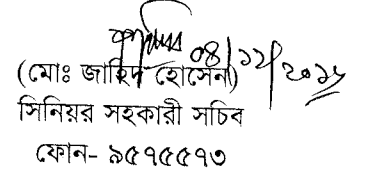 ০৪/১২/২০১৮
(মোঃ জাহিদ হোসেন)
সিনিয়র সহকারী সচিব
ফোন- ৯৫৭৫৫৭৩